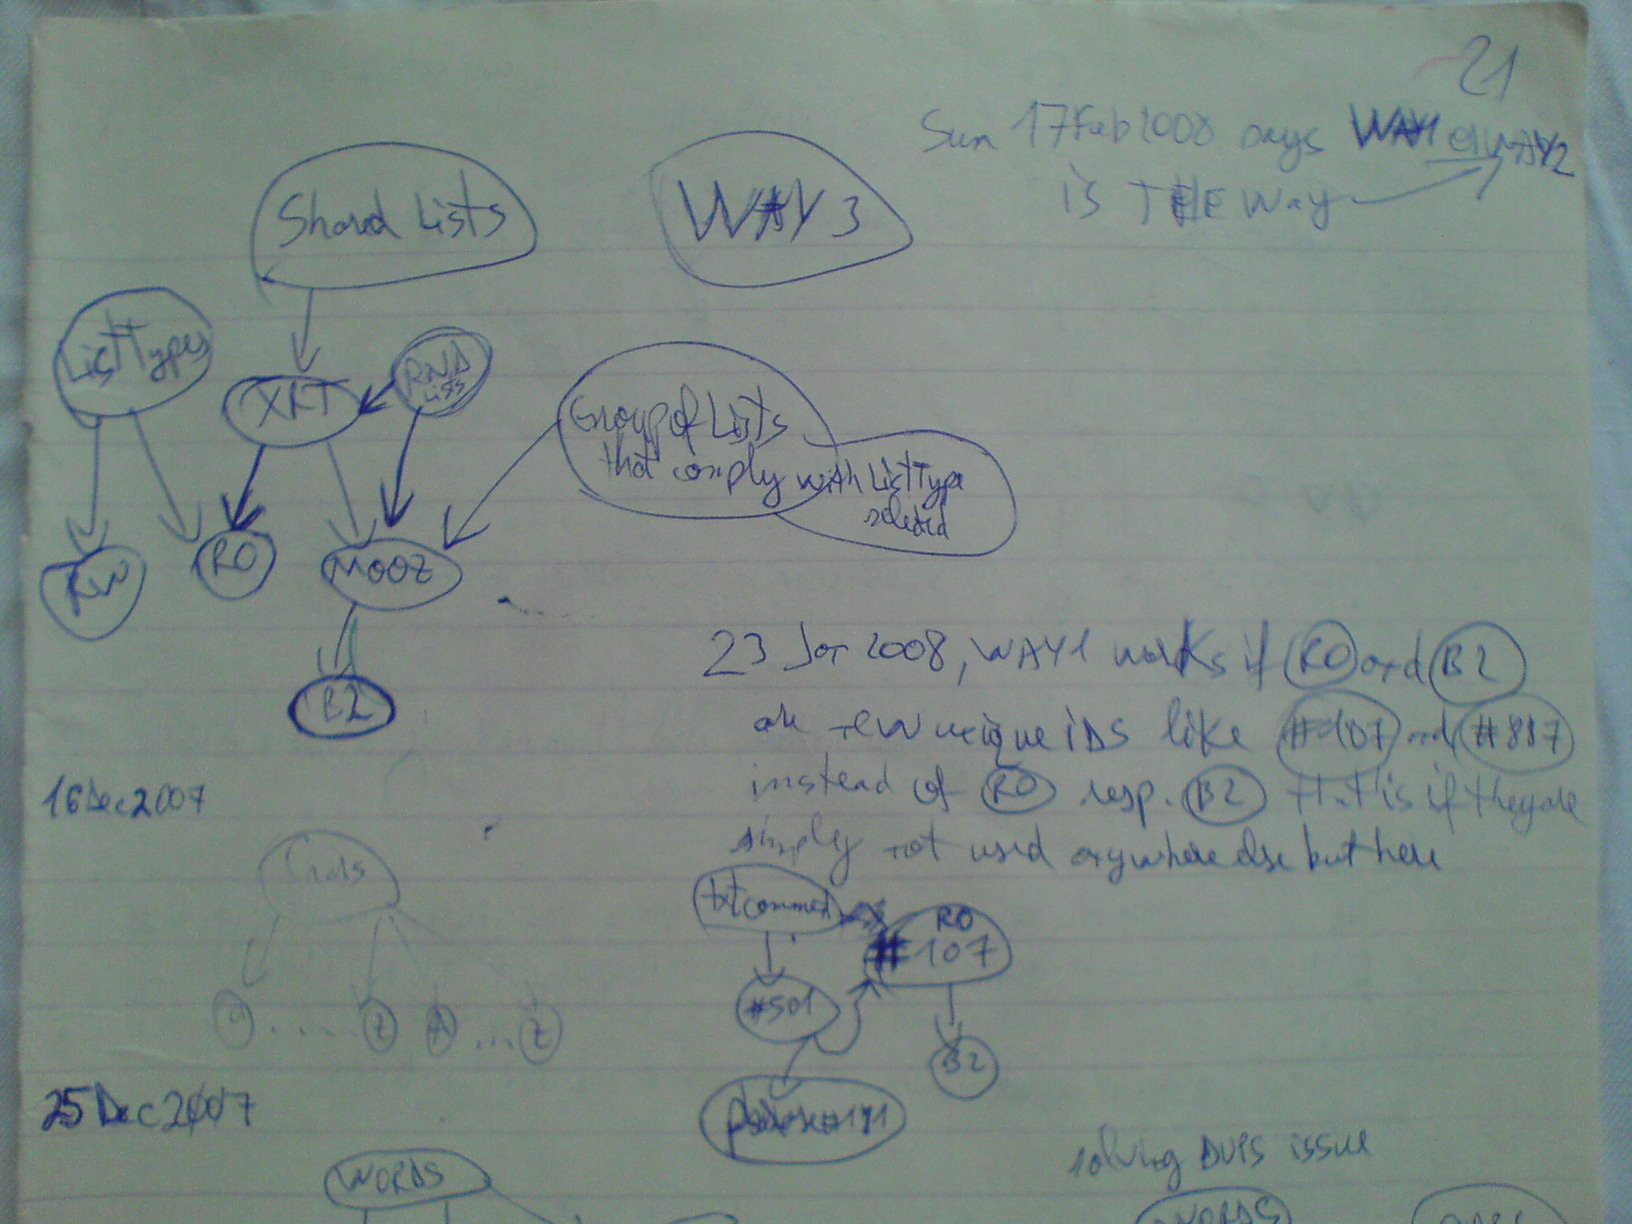 21
Sun 17Feb2008 says WAY1 or WAY2
is THE Way
Shared Lists
WAY 3
ListTypes
XRT
RND
Lists
Group of Lists
that comply with ListType
selected
RW
RO
MOOZ
B2
23 Jan 2008, WAY1 works if RO and B2
are new unique IDs like #107 and #887
instead of RO resp. B2 that is if they are
simply not used anywhere else but here
16Dec2007
Chars
txt comment
RO
#107
#501
B2
Z A ... Z
25Dec2007
solving DUPS issue
WORDS
WORDS